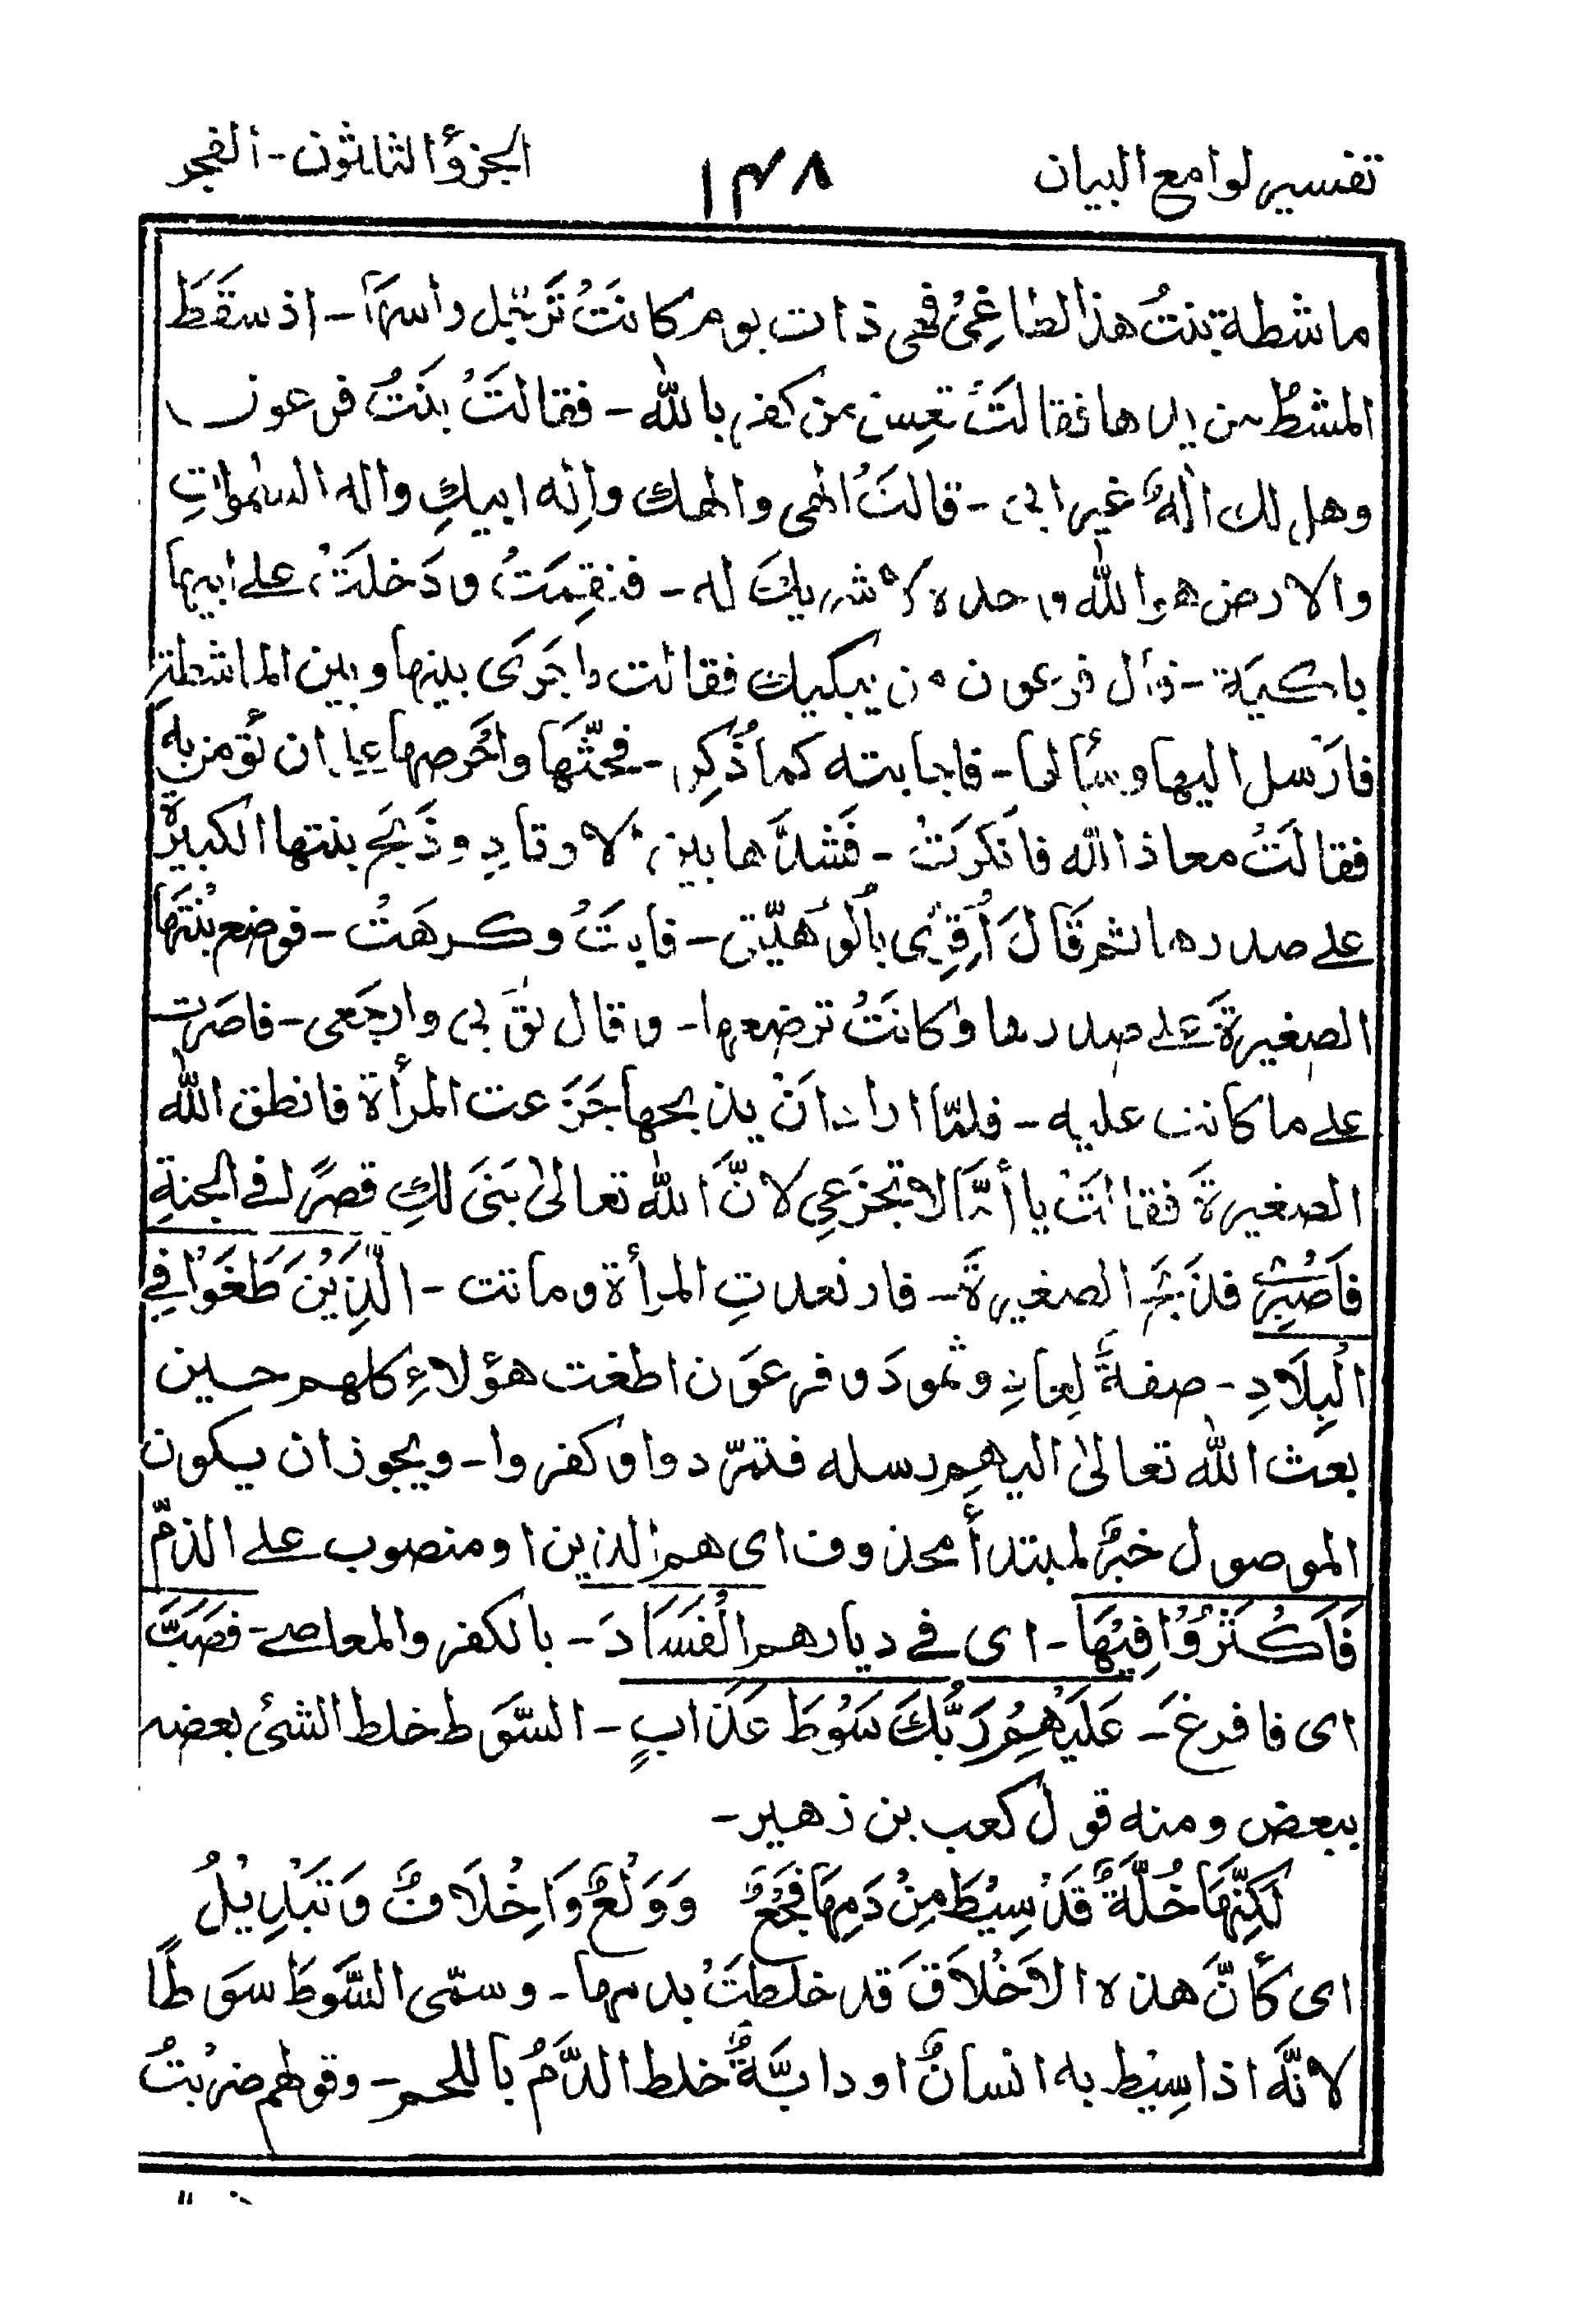 تفسير لوامع البيان ١٤٨ الجزؤ الثلثون - الفجر
ماشطة بنتُ هذا لطاغِیْ فهی ذات یوم کانَتْ تَرجّل رأسَهَا - اذ سقَطَ
المشطُ من یدها فقالَتْ تعِسَ من کفر بالله - فقالتْ بنَتُ فرعون
وهل لك الٰهٌ غیر ابی - قالتْ الٰهی والٰهك واِلٰه ابیكِ واله السمٰواتِ
والارض هو الله وحده لا شریكَ له - فنقِمَتْ ودَخلَتْ علے ابیها
باکیَة - فسأل فرعون من یبکیك فقالت ما جَرَی بینها وبین الماشطةِ
فارْسل الیها وسألها - فاجابته کما ذُکِر - فحثّهَا واحْرصها علے ان تؤمن به
فقالَتْ معاذ الله فانکرَتْ - فَشدَّها بین الاوتادِ وذَبَح بنتها الکبیرةَ
علے صدرها ثم قَالَ اُقِرِّی باُلُوْهیّتی - فابتَ وکرهَتْ - فوضع بنْتَهَا
الصغیرةَ علے صدرها وکانَتْ ترضعها - وقال توبی وارجَعی - فاصَرت
علے ما کانت علیه - فلمّا اراد انْ یذبحها جَزَعت المرأة فانطق الله
الصغیرةَ فقالتْ یا أمّاَ لا تجْزَعِی لانَّ الله تعالیٰ بَنَی لكِ قصرًا فی الجنةِ
فاَصْبِرِیْ فذَبَحَ الصغیرةَ - فارتعدتِ المرأة وماتت - الَّذِیْنَ طَغَوْا فِی
الْبِلَادِ - صفةٌ لِعادِ وثمودَ وفرعَون اطغت هؤلاءِ کلهم حین
بعث الله تعالیٰ الیهم رسله فتمرّدوا وکفروا - ویجوز ان یکون
الموصول خبرٌ لمبتدأ محذوف ای هم الذین او منصوب علے الذمّ
فَاَکْثَرُوْا فِیْهَا - ای فے دیارهم الْفَسَادَ - بالکفر والمعاصے - فصَبَّ
ای فافرغَ - عَلَیْهِمْ رَبُّكَ سَوْطَ عَذَابٍ - السّوَط خلط الشئ بعضه
ببعض ومنه قول کعب بن زهیر -
لَکِنَّهَا خُلَّةٌ قَدْ سِیْطَ مِنْ دَمِهَا فَجْعٌ وَوَلْعٌ وَاِخْلَافٌ وَتَبْدِیْلُ
ای کأنَّ هذه الاَخْلاَقَ قد خلطتَ بدمها - وسمّی السَّوطَ سوَطًا
لانَّه اذا سِیْط به انسانٌ او دابَّةٌ خلط الدَّمُ باللحم - وقولهم ضربْتُ